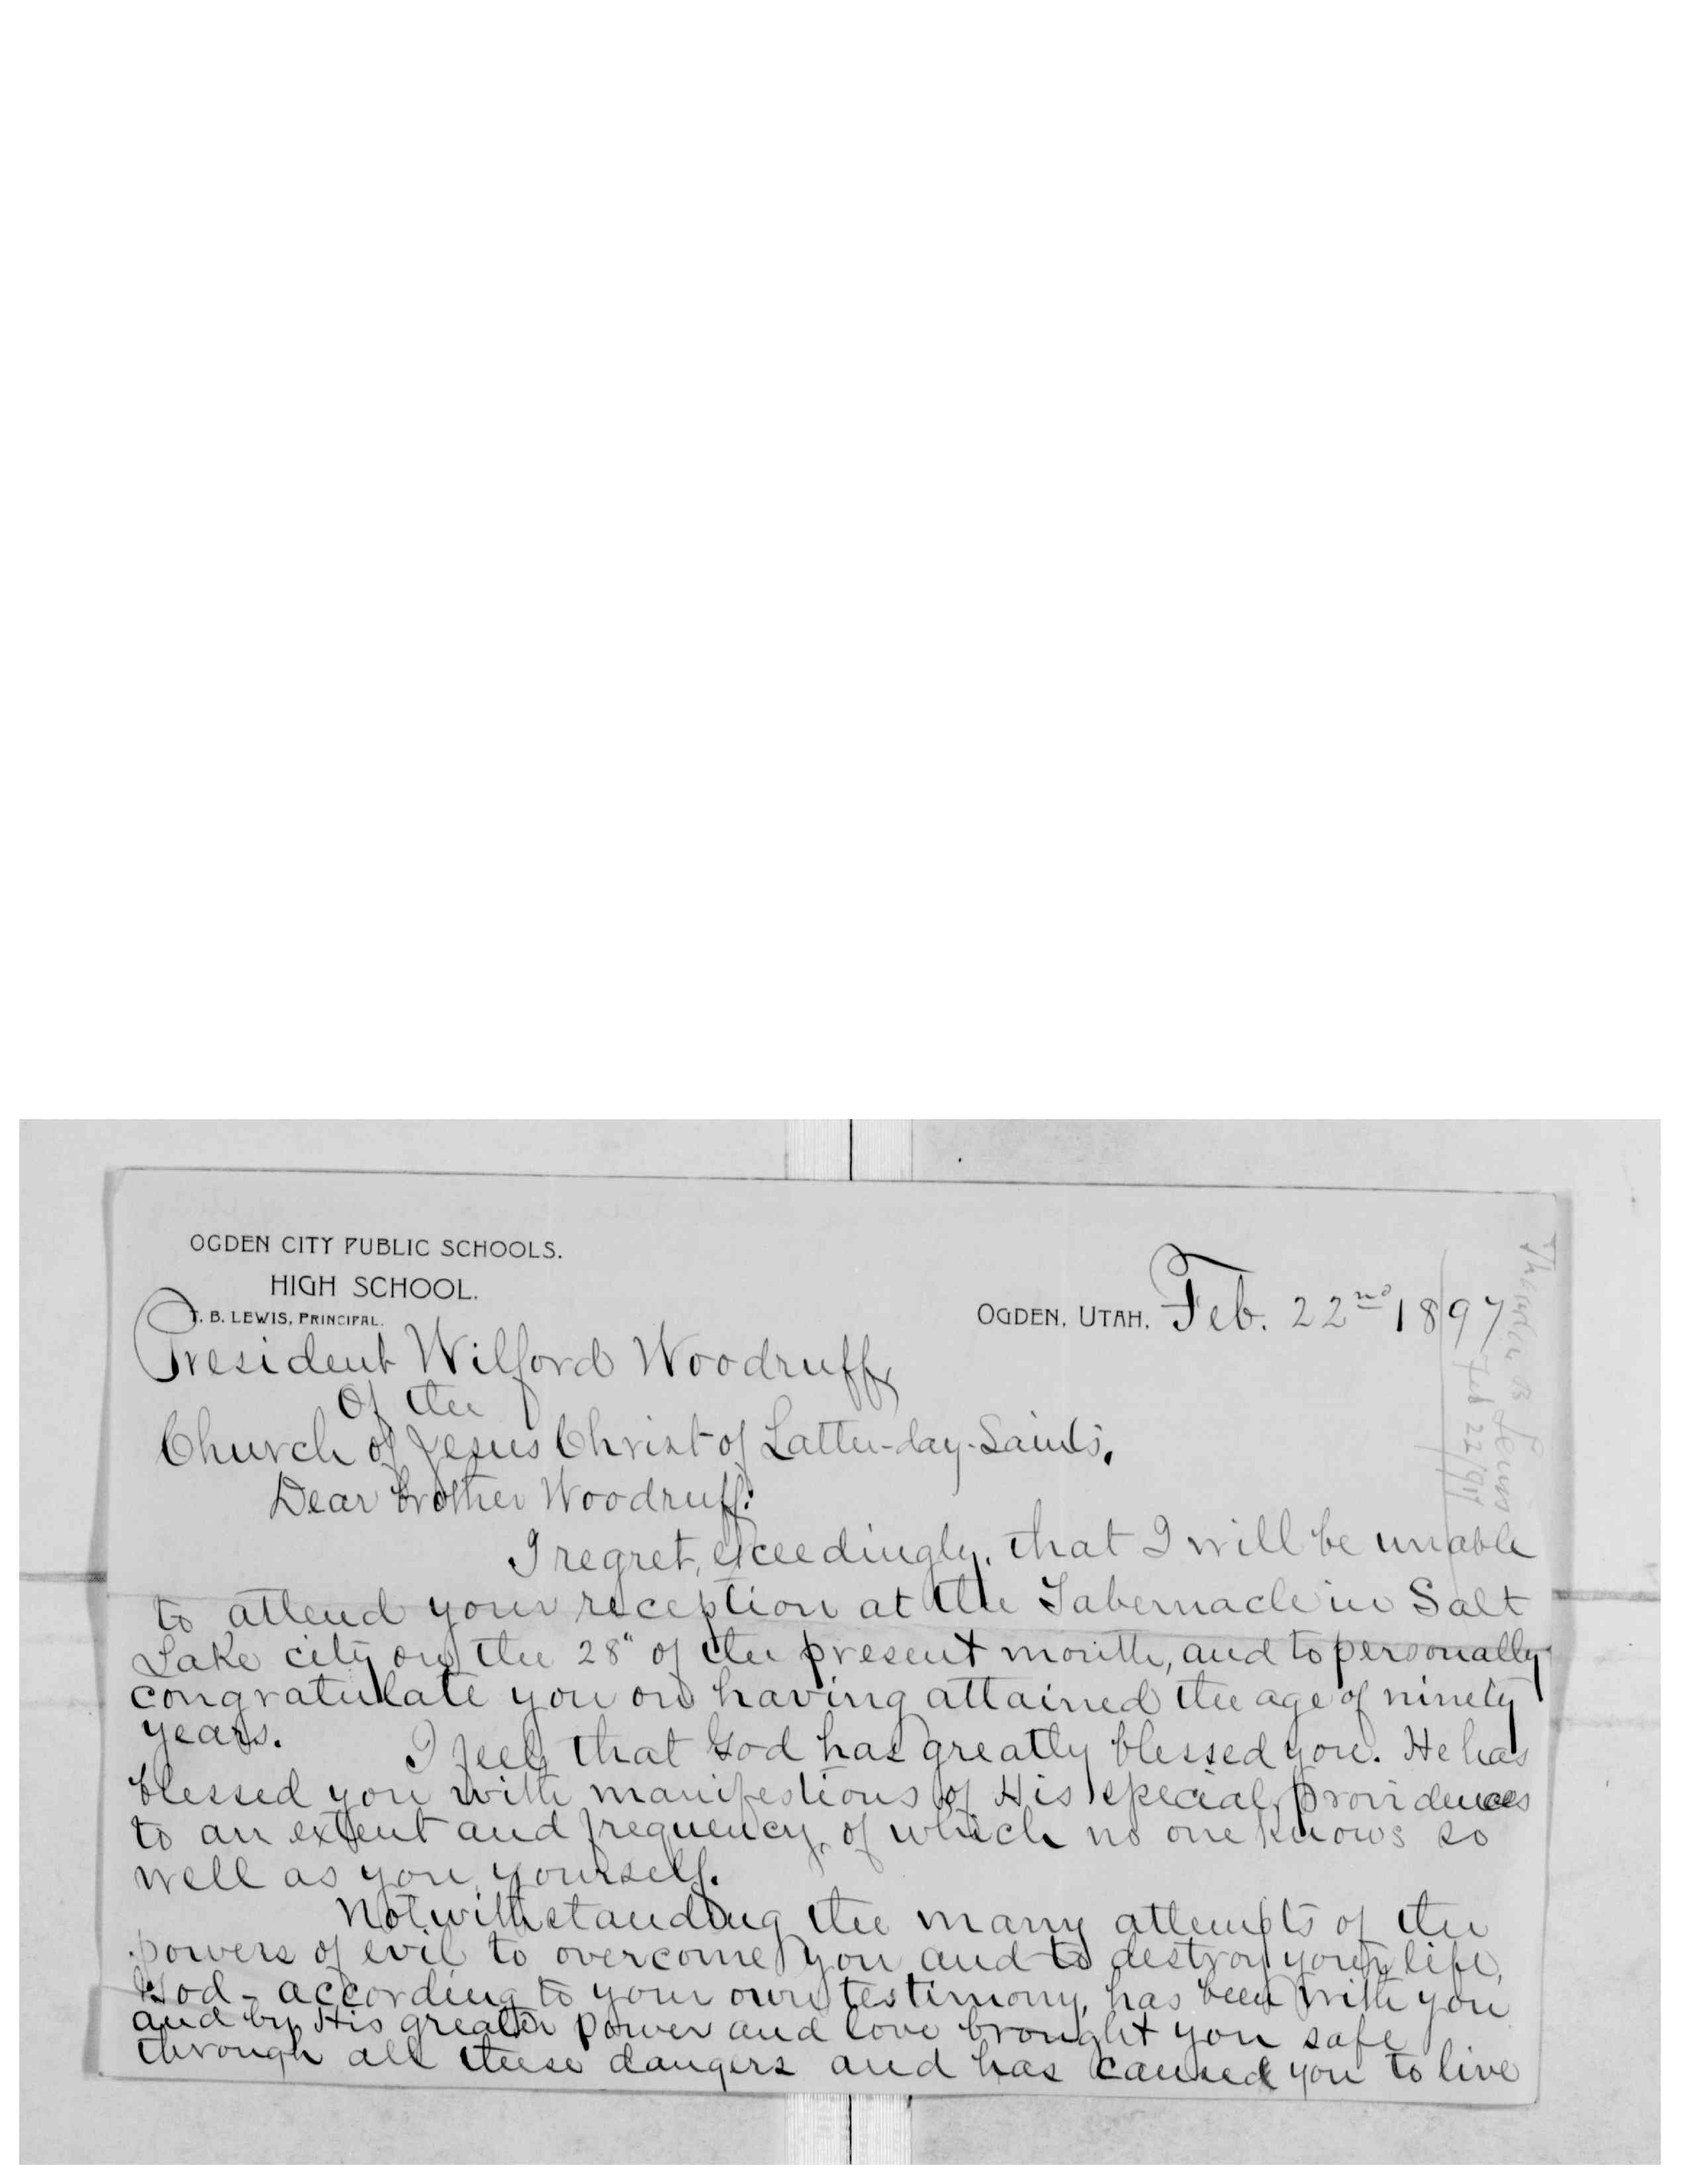 OGDEN CITY PUBLIC SCHOOLS.
HIGH SCHOOL.
T. B. LEWIS, PRINCIPAL.
OGDEN, UTAH, Feb. 22nd 1897
President Wilford Woodruff,
Of the
Church of Jesus Christ of Latter-day-Saints.
Dear brother Woodruff:
I regret, exceedingly, that I will be unable
to attend your reception at the Tabernacle in Salt
Lake city on the 28" of the present month, and to personally
congratulate you on having attained the age of ninety
years.
I feel that God has greatly blessed you. He has
blessed you with manifestions of His special providences
to an extent and frequency, of which no one knows so
well as you, yourself.
Notwithstanding the many attempts of the
powers of evil to overcome you and to destroy your life,
God - according to your own testimony, has been with you
and by His greater power and love brought you safe
through all these dangers and has caused you to live
Theodore B Lewis
Feb 22/97